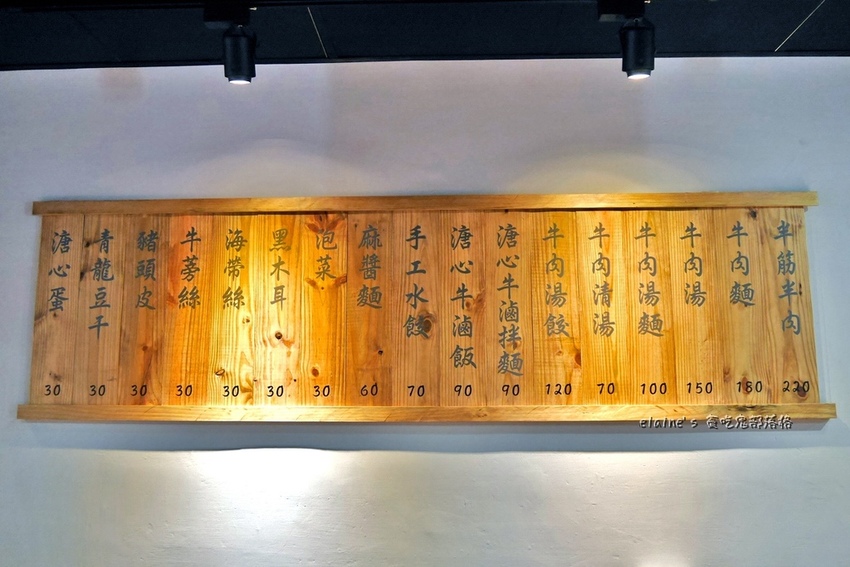 半筋半肉 220
牛肉麵 180
牛肉湯 150
牛肉湯麵 100
牛肉清湯 70
牛肉湯餃 120
溏心牛滷拌麵 90
溏心牛滷飯 90
手工水餃 70
麻醬麵 60
泡菜 30
黑木耳 30
海帶絲 30
牛蒡絲 30
豬頭皮 30
青龍豆干 30
溏心蛋 30
elaine's 貪吃鬼部落格